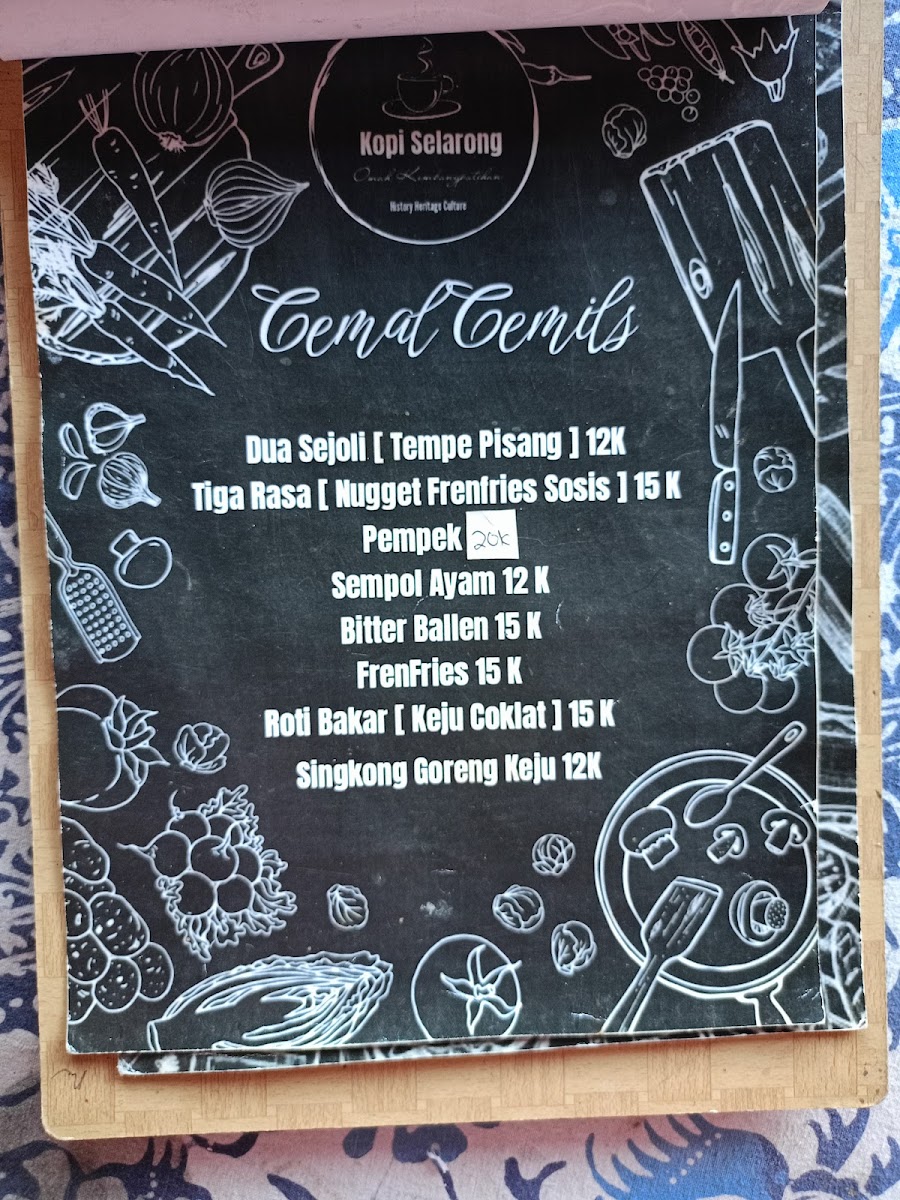 Kopi Selarong
Omah Kembangputihan
History Heritage Culture
Cemal Cemils
Dua Sejoli [ Tempe Pisang ] 12K
Tiga Rasa [ Nugget Frenfries Sosis ] 15 K
Pempek 20K
Sempol Ayam 12 K
Bitter Ballen 15 K
FrenFries 15 K
Roti Bakar [ Keju Coklat ] 15 K
Singkong Goreng Keju 12K